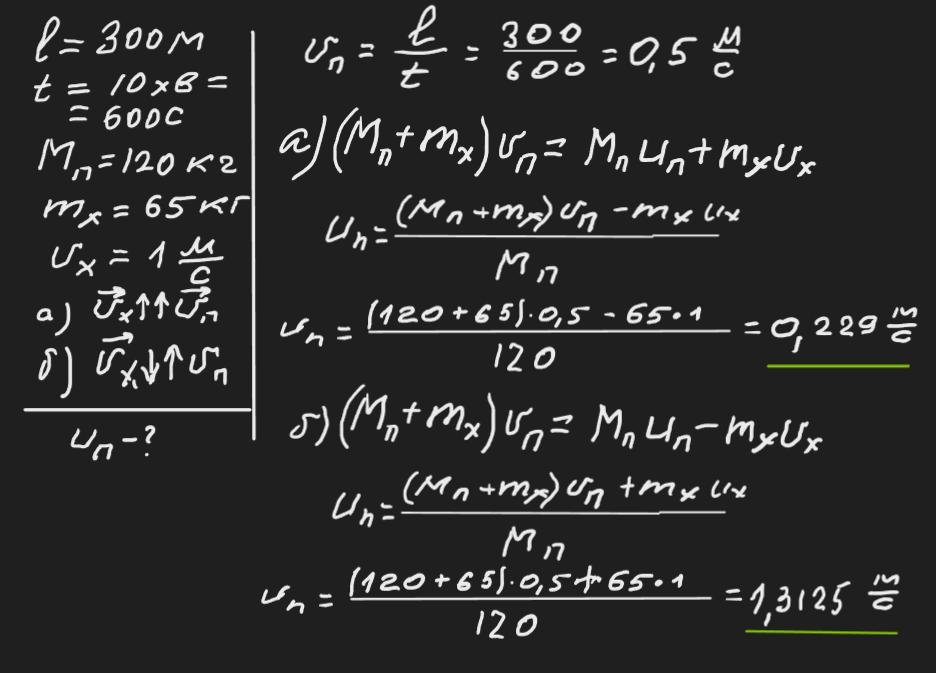 l = 300 м
t = 10 хв =
= 600 с
Mп = 120 кг
mх = 65 кг
υх = 1 м/с
а) υх ↑↑ υп
б) υх ↓↑ υп
uп - ?
υп = l/t = 300/600 = 0,5 м/с
а) (Mп + mх) υп = Mп uп + mх υх
uп = ((Mп + mх) υп - mх υх)/Mп
υп = ((120 + 65) · 0,5 - 65 · 1)/120 = 0,229 м/с
б) (Mп + mх) υп = Mп uп - mх υх
uп = ((Mп + mх) υп + mх υх)/Mп
υп = ((120 + 65) · 0,5 + 65 · 1)/120 = 1,3125 м/с